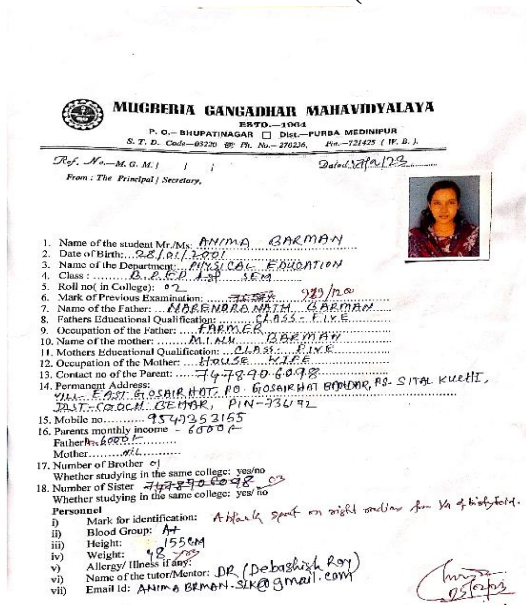 MUGBERIA GANGADHAR MAHAVIDYALAYA
ESTD.—1964
P. O.— BHUPATINAGAR □ Dist.—PURBA MEDINIPUR
S. T. D. Code—03220 Ph. No.— 270236, Pin.—721425 ( W. B. ).
Ref. No—M. G. M. / / /
Dated
From : The Principal / Secretary,
1. Name of the student Mr./Ms: ANIMA BARMAN
2. Date of Birth: 28/01/2001
3. Name of the Department: PHYSICAL EDUCATION
4. Class : B.P.ED 1st SEM
5. Roll no( in College): 02
6. Mark of Previous Examination:
7. Name of the Father: NARENDRANATH BARMAN
8. Fathers Educational Qualification: CLASS - FIVE
9. Occupation of the Father: FARMER
10. Name of the mother: MINU BARMAN
11. Mothers Educational Qualification: CLASS - FIVE
12. Occupation of the Mother: HOUSE WIFE
13. Contact no of the Parent: 7478906098
14. Permanent Address:
VILL- EAST GOSAIRHAT, PO- GOSAIRHAT BANDAR, PS- SITAL KUCHI,
DIST- COOCH BEHAR, PIN-736172
15. Mobile no 9547353155
16. Parents monthly income - 6000/-
Father 6000/-
Mother nil
17. Number of Brother 01
Whether studying in the same college: yes/no
18. Number of Sister 7478906098 03
Whether studying in the same college: yes/ no
Personnel
i) Mark for identification: A black spot on right
ii) Blood Group: A+
iii) Height: 155CM
iv) Weight: 48
v) Allergy/ Illness if any:
vi) Name of the tutor/Mentor: DR (Debashish Roy)
vii) Email Id: ANIMA BRMAN.SLK@gmail.com